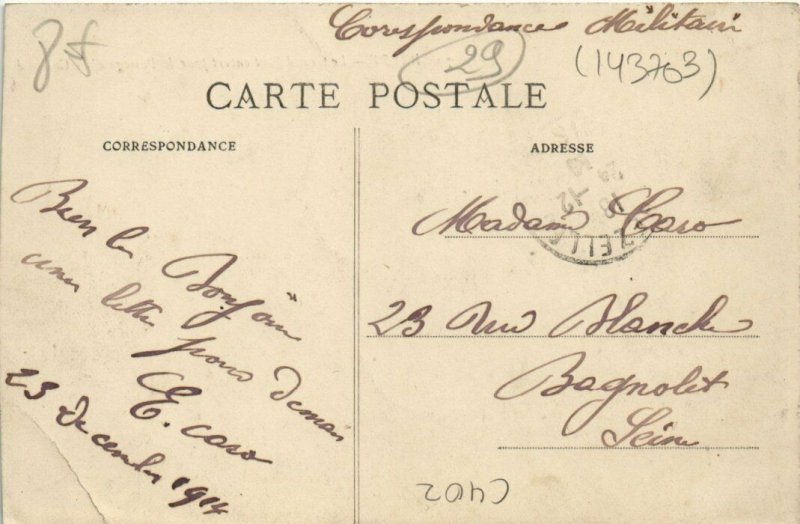 8f
Correspondance Militair
29
(143703)
CARTE POSTALE
CORRESPONDANCE
ADRESSE
Bien le Bonjour
une lettre pour demain
E. Caro
23 decembre 1914
Madame Caro
23 Rue Blanche
Bagnolet
Seine
C402